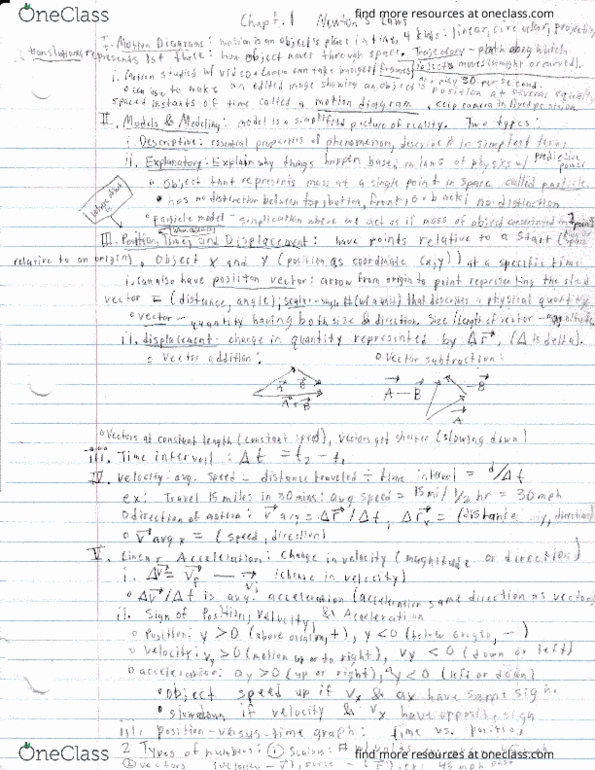 OneClass
find more resources at oneclass.com
Chapt. 1 Newton's Laws
I. Motion Diagrams: motion is an object's place in time, 4 kinds: linear, circular, projectile,
translational represents 1st three: how object moves through space. Trajectory - path along which
object moves (straight or curved).
i. Motion studied w/ video camera can take images (frames) 30 per second.
can use to make an edited image showing an object's position at several equally
spaced instants of time called a motion diagram, keep camera in fixed position.
II. Models & Modeling: model is a simplified picture of reality. Two types:
i. Descriptive: essential properties of phenomenon, describe it in simplest terms
ii. Explanatory: Explain why things happen based on laws of physics w/ predictive power
o object that represents mass at a single point in space called particle.
• has no distinction between top/bottom, front, or back; no distinction
o particle model - simplification where we act as if mass of object concentrated in 1 point
III. Position, Time, and Displacement: have points relative to a start (
relative to an origin). Object X and Y (position as coordinate (x,y)) at a specific time
i. can also have position vector: arrow from origin to point representing the
vector = (distance, angle); scalar - single # (w/ a unit) that describes a physical quantity
o vector - quantity having both size & direction. Size / length of vector - magnitude
ii. displacement: change in quantity represented by Δr⃗, (Δ is delta).
o Vector addition: o Vector subtraction:
A⃗ B⃗ A⃗ + B⃗
A⃗ - B⃗ -B⃗ A⃗
o Vectors at constant length (constant speed), vectors get shorter (slowing down)
iii. Time interval: Δt = t₂ - t₁
IV. Velocity: avg. speed = distance traveled ÷ time interval = d/Δt
ex: Travel 15 miles in 30 mins: avg speed = 15mi / 1/2 hr = 30 mph
o direction of motion: v⃗ avg = Δr⃗/Δt, Δr⃗x = (distance, direction)
o v⃗ avg x = (speed, direction)
V. Linear Acceleration: Change in velocity (magnitude or direction)
i. Δv⃗ = v⃗f - v⃗i (change in velocity)
o Δv⃗/Δt is avg. acceleration (acceleration same direction as vector)
ii. Sign of Position, Velocity, & Acceleration
o Position: y > 0 (above origin, +), y < 0 (below origin, -)
o Velocity: vy > 0 (motion up or to right), vy < 0 (down or left)
o acceleration: ay > 0 (up or right), ay < 0 (left or down)
• object speed up if vx & ax have same sign.
• slowdown if velocity & vx have opposite sign
iii. position-versus-time graph: time vs. position
2 Types of numbers: ① Scalars: #
② vectors (velocity - v⃗), force - (F⃗), ex: 45 mph
OneClass
find more resources at oneclass.com